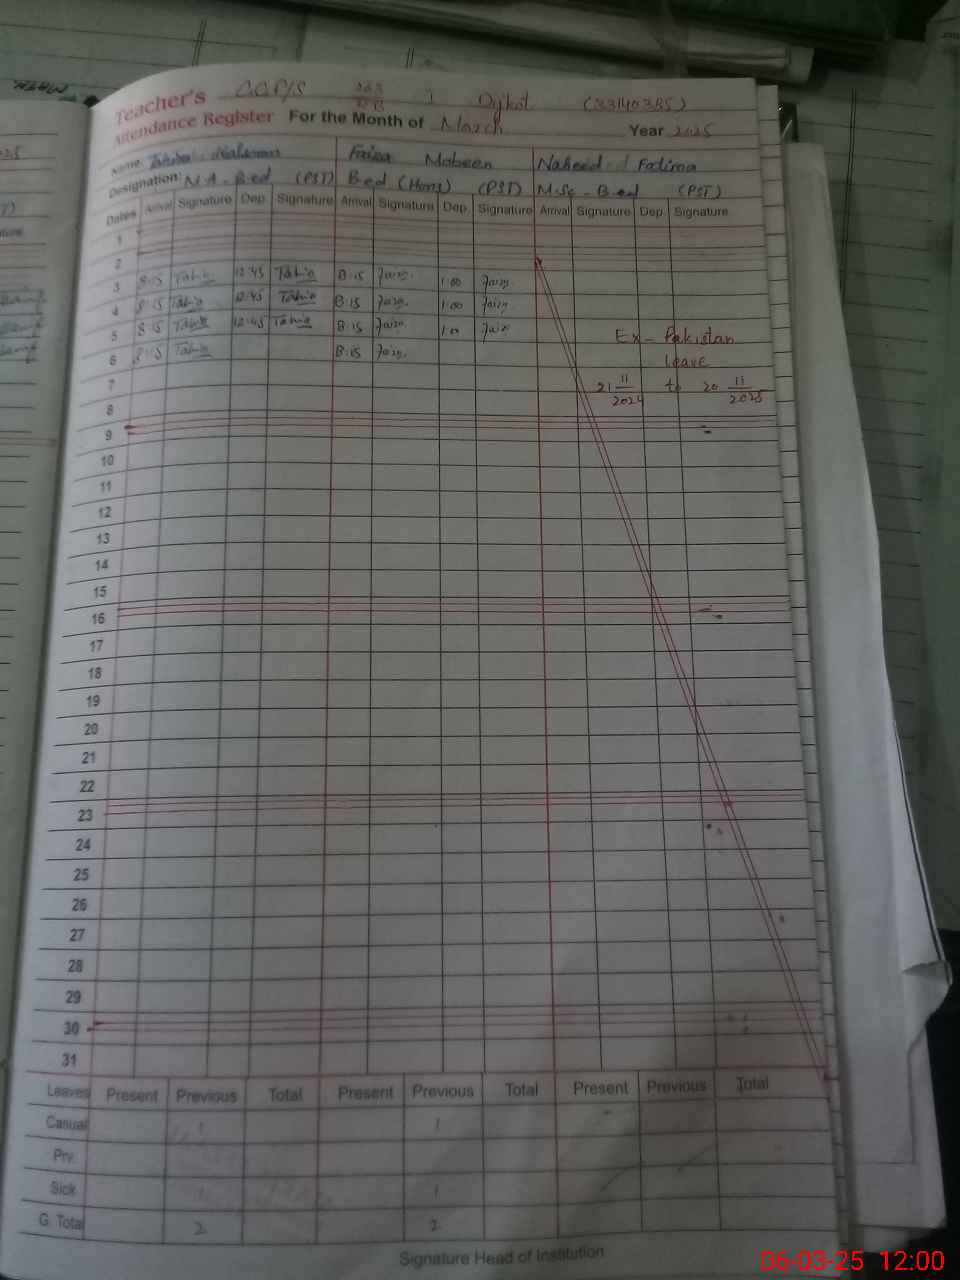 Teacher's
Attendance Register For the Month of March Year 2025
Dijkot (33140385)
Name: Faiza Mobeen Naheed Fatima
Designation: M.A - B.ed (PST) B.ed (Hons) (PST) M.Sc - B.ed (PST)
Dates Arrival Signature Dep. Signature Arrival Signature Dep. Signature Arrival Signature Dep. Signature
1
2
3 8:15 Tahir 12:45 Tahir 8:15 Faiza 1:00 Faiza
4 8:15 Tahir 12:45 Tahir 8:15 Faiza 1:00 Faiza
5 8:15 Tahir 12:45 Tahir 8:15 Faiza 1:00 Faiza
Ex - Pakistan
leave
6 8:15 Tahir 8:15 Faiza
21 11/2024 to 20 11/2025
7
8
9
10
11
12
13
14
15
16
17
18
19
20
21
22
23
24
25
26
27
28
29
30
31
Leaves Present Previous Total Present Previous Total Present Previous Total
Casual 1 1
Prv.
Sick 1 1
G. Total 2 2
Signature Head of Institution
06-03-25 12:00